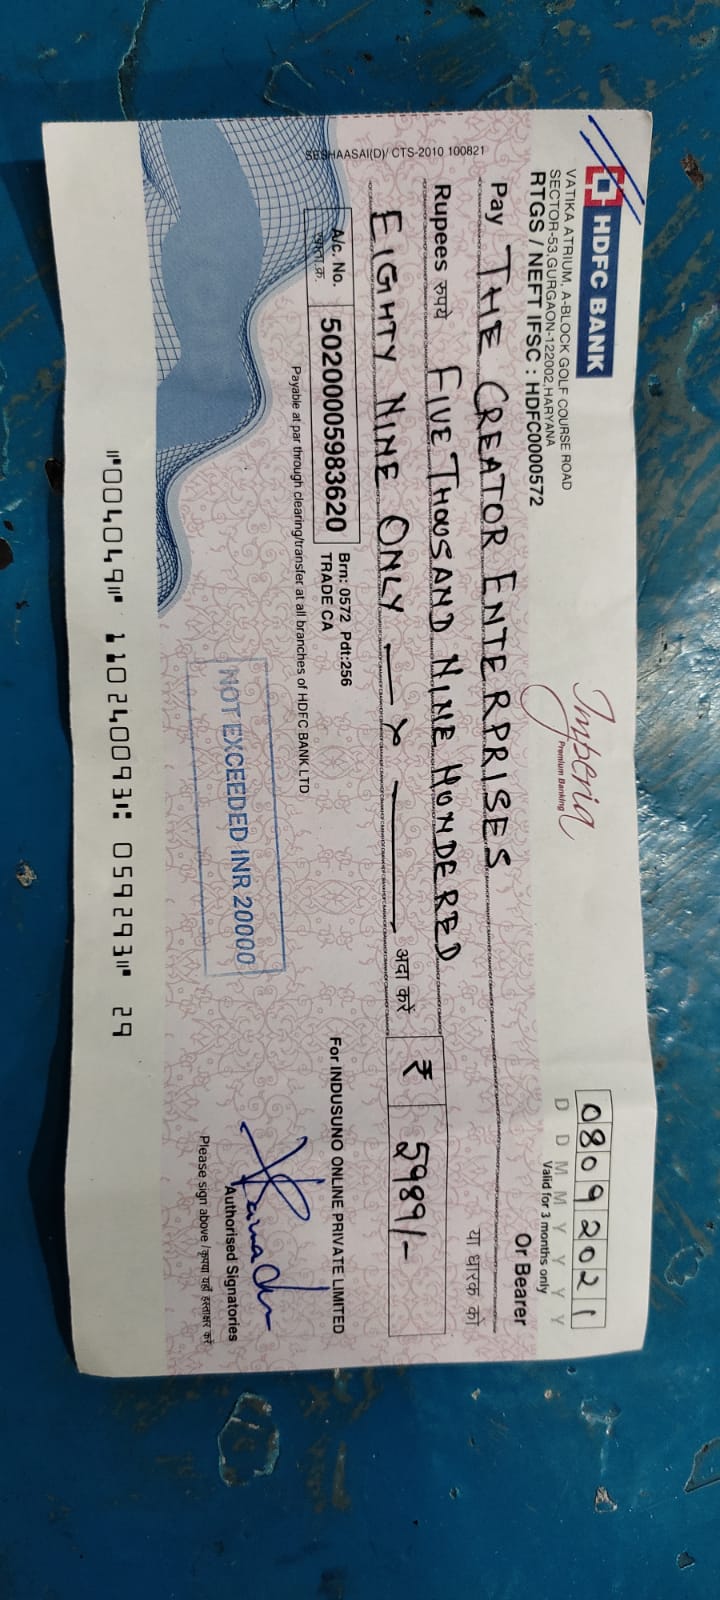 HDFC BANK
VATIKA ATRIUM, A-BLOCK GOLF COURSE ROAD
SECTOR-53,GURGAON-122002,HARYANA
RTGS / NEFT IFSC : HDFC0000572
Imperia
Premium Banking
08092021
D D M M Y Y Y Y
Valid for 3 months only
Pay THE CREATOR ENTERPRISES
Or Bearer
या धारक को
Rupees रुपये FIVE THOUSAND NINE HUNDERED
EIGHTY NINE ONLY — x —
अदा करें
₹ 5989/-
A/c. No.
खाता क्र.
50200005983620
Brn: 0572 Pdt:256
TRADE CA
Payable at par through clearing/transfer at all branches of HDFC BANK LTD
NOT EXCEEDED INR 20000
For INDUSUNO ONLINE PRIVATE LIMITED
Authorised Signatories
Please sign above / कृपया यहाँ हस्ताक्षर करें
SESHAASAI(D)/ CTS-2010 100821
⑈004049⑈ 110240093⑆ 059293⑈ 29